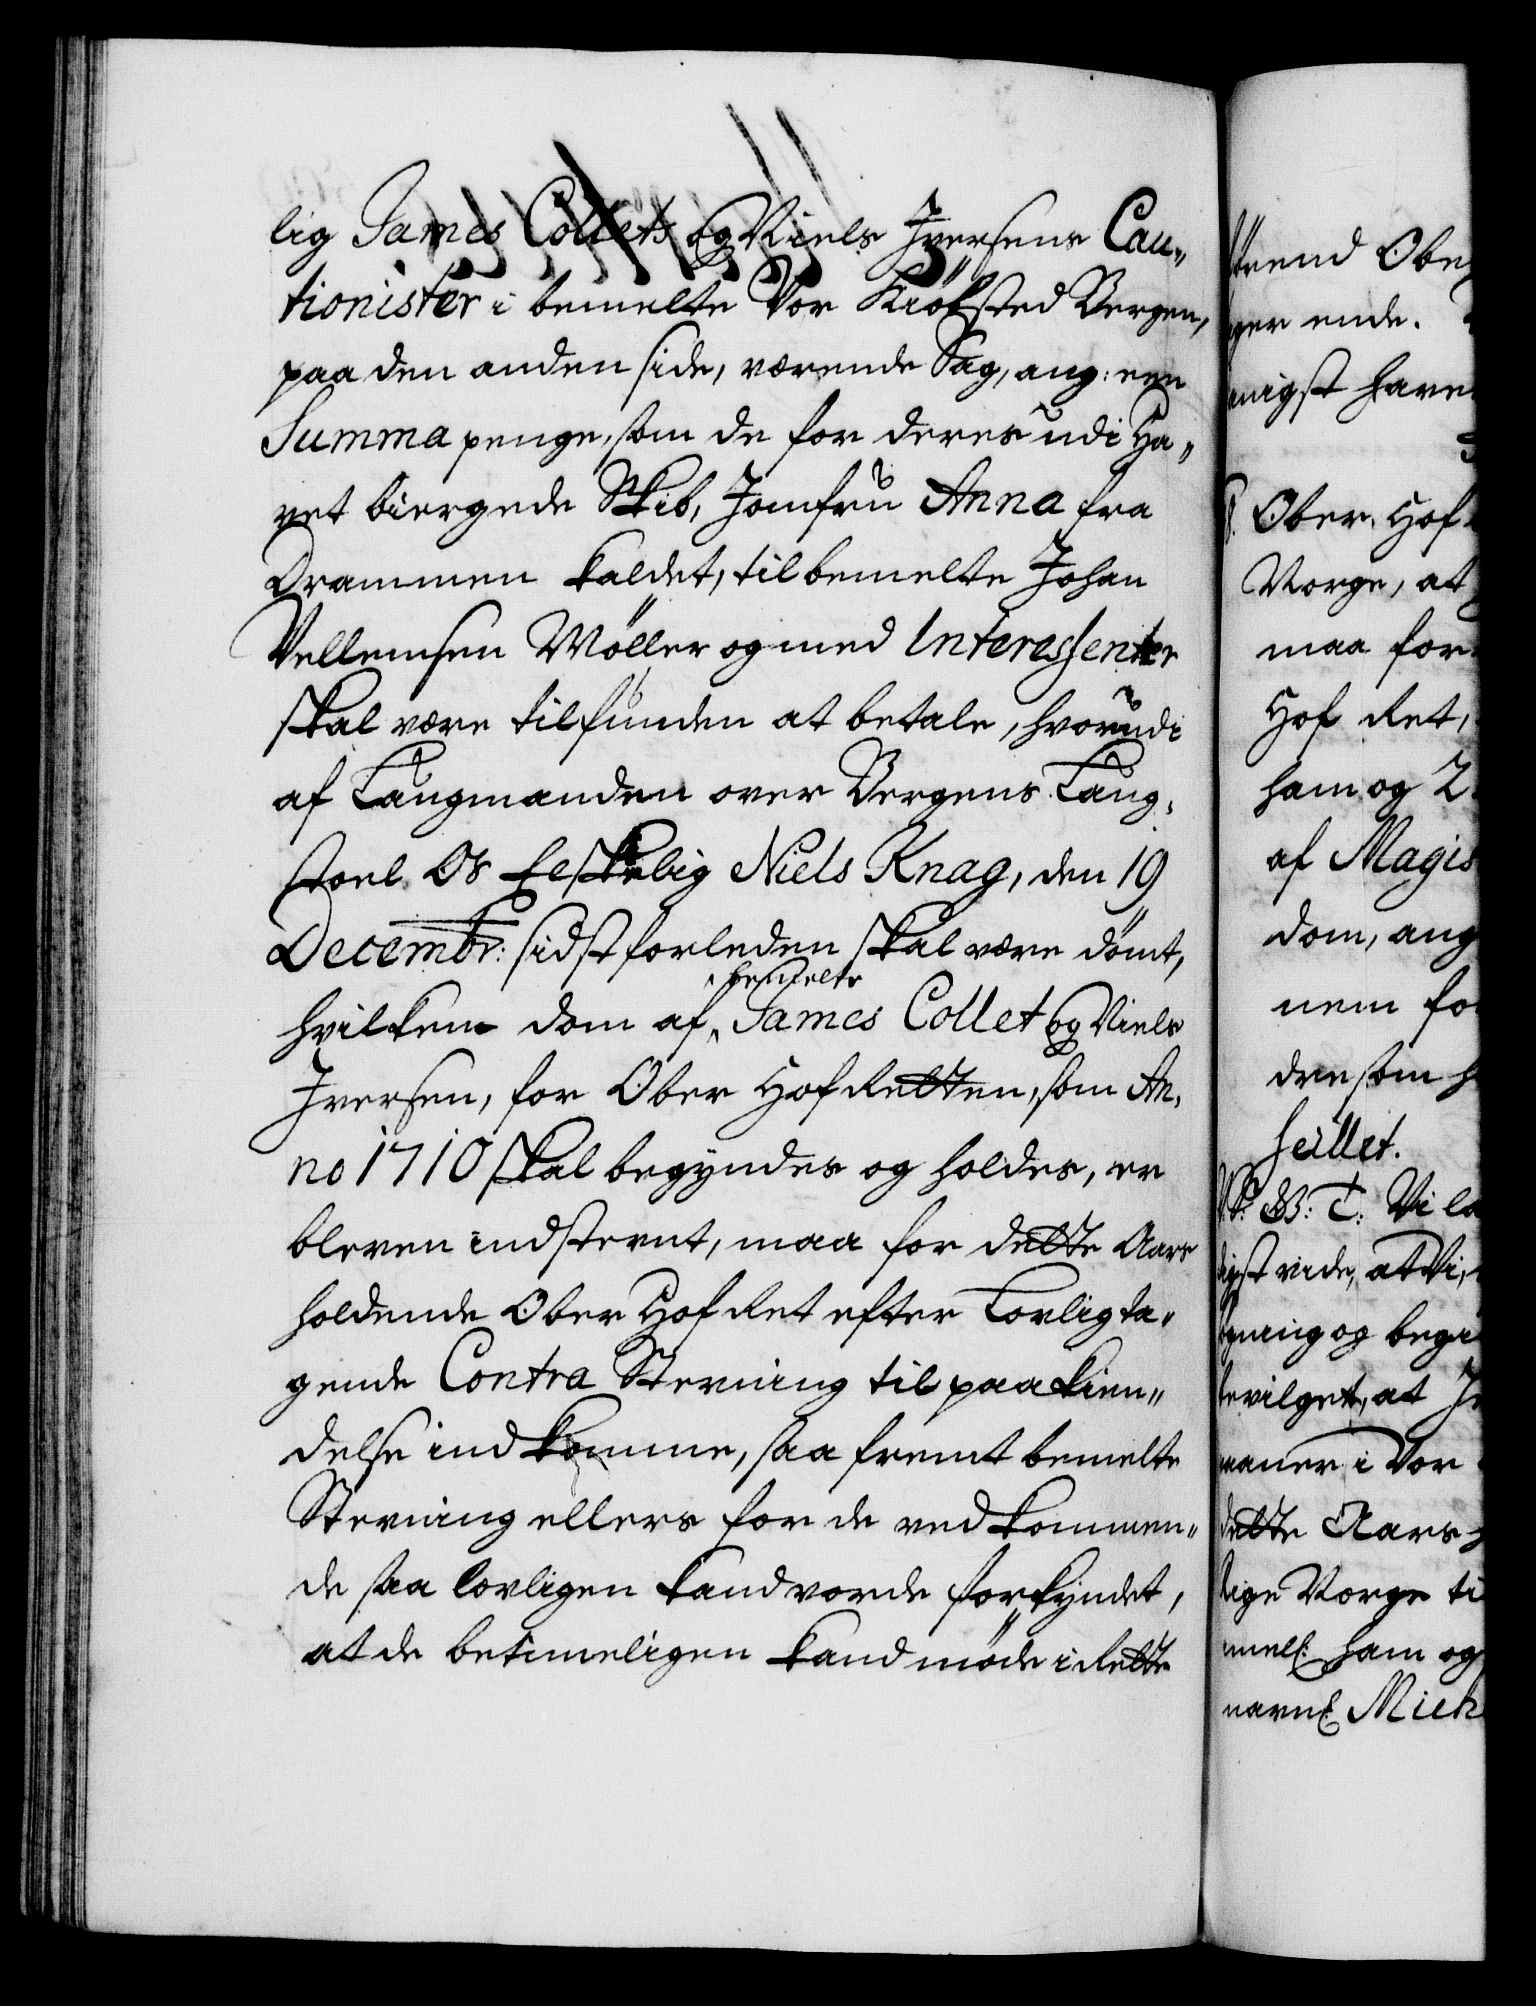 lig James Collets og Niels Iversens Cau„
tionister i bemelte Vor Kiöbsted Bergen,
paa den anden side, værende Sag, ang: een
Summa penge, som de for deres udi Ha„
vet biergede Skib, Jomfru Anna fra
Drammen kaldet, til bemelte Johan
Vellemsen Möller og med Interessenter
skal være tilfunden at betale, hvorudi
af Laugmanden over Bergens Laug„
stoel Os Elskelig Niels Knag, den 19
Decembr: sidstforleden skal være dömt,
hvilken dom af bemelte James Collet og Niels
Iversen, for Ober Hof Retten, som An„
no 1710 skal begyndes og holdes, er
bleven indstevnt, maa for dette Aars
holdende Ober Hof Ret efter Lovlig ta„
gende Contra Stevning til paakien„
delse ind komme, saa fremt bemelte
Stevning ellers for de vedkommen„
de saa lovligen kand vorde forkyndet,
at de betimeligen kand möde i Rette
ende.
Ober Hof
Norge, at
maa for
Hof Ret,
ham og
af Magis
dom, ang
nem fo
dre som h
heillet.
V: G: T: Vi
vide, at Vi,
og begi
bevilget, at
i Vor
dette Aars
Norge ti
ham og
navnl: Mich